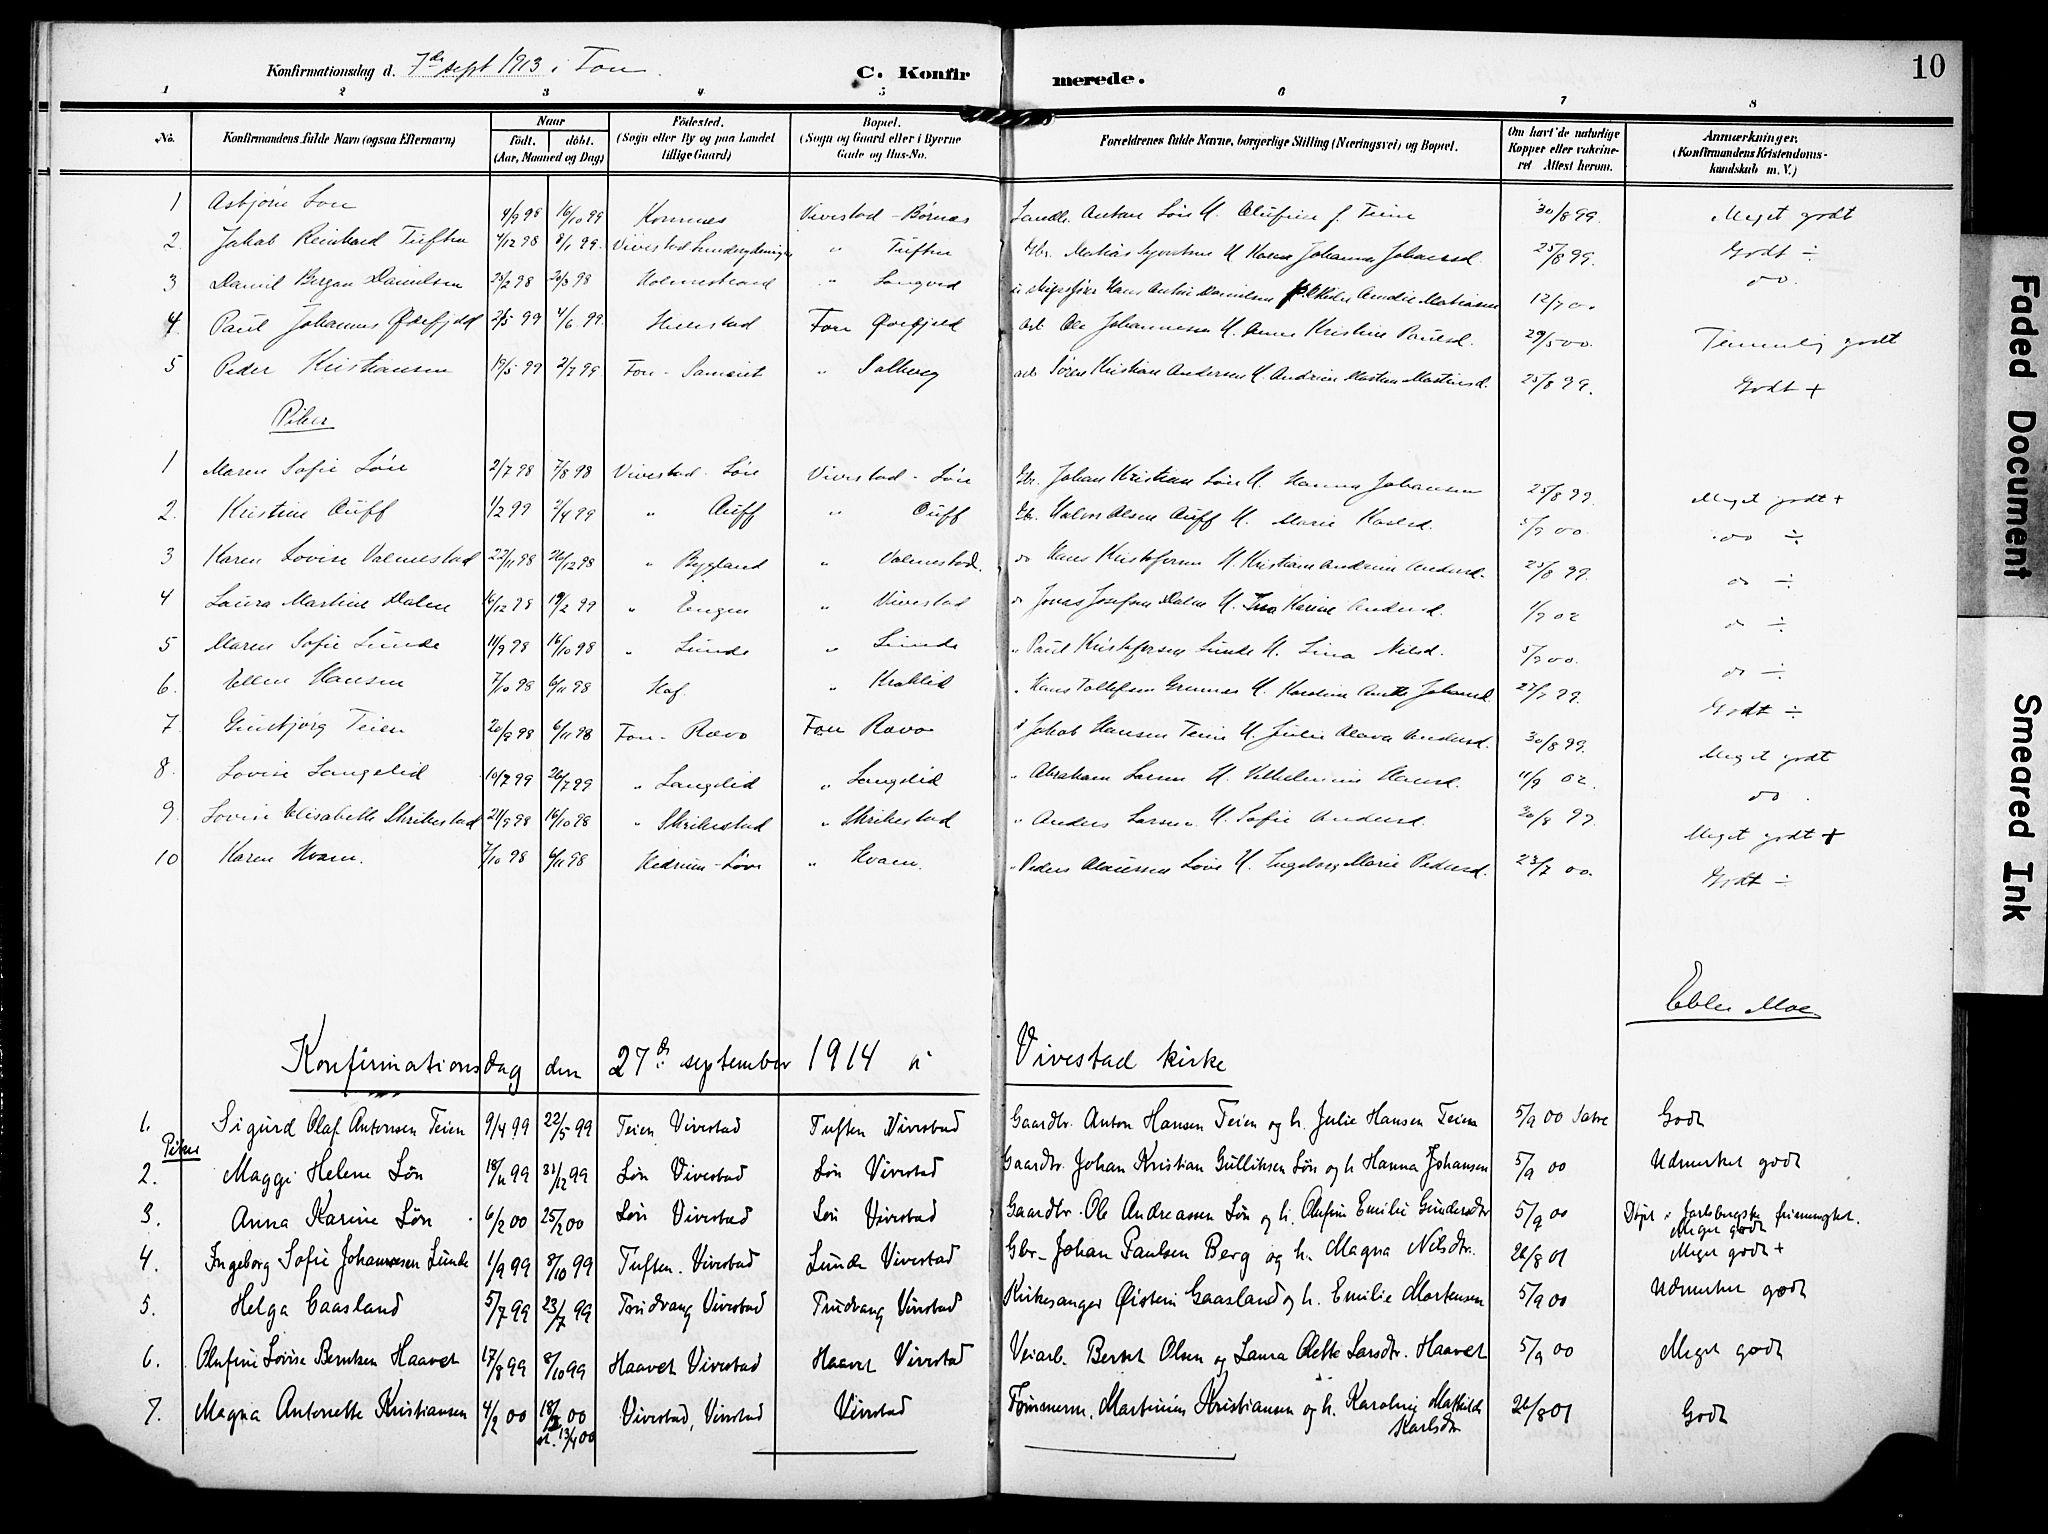 Konfirmationsdag d. 7de sept 1913 i Fon. C. Konfirmerede. 10
1 2 3 4 5 6 7 8
No. Konfirmandens fulde Navn (ogsaa Efternavn) Naar født. døbt. (Aar, Maaned og Dag) Fødested. (Sogn eller By og paa Landet tillige Gaard) Bopæl. (Sogn og Gaard eller i Byerne Gade og Hus-No. Forældrenes fulde Navne, borgerlige Stilling (Næringsvei) og Bopæl. Om havt de naturlige Kopper eller vaccineret Attest herom. Anmærkninger. (Konfirmandens Kristendomskundskab m. V.)
1 Asbjørn Løn 4/9 98 16/10 99 Komnes Vivestad - Børnes Anton Løn U. Olufine f. Teien 30/8 99. Meget godt
2. Jakob Reinhard Tuften 4/12 98 8/1 99. Vivestad " Tuften Gbr. Matias U. Karen Johanne 25/8 99. Godt ÷
3 Daniel Bergan Danielsen 23/2 98 20/3 98 Holmestrand " Langved Hans Anton Danielsen 12/7 00 do.
4. Paul Johannes Øvefjeld 2/5 99 4/6 99. Hillestad Fon Øvefjeld arb Ole Johannesen U. Anne Kristine Paulsd. 29/5 00. Temmelig godt
5 Peder Kristiansen 19/5 99 2/7 99 Fon - " Solberg arb Søren Kristian Andersen U. Andrine Martine Martinsd. 25/8 99. Godt +
Piker
1 Maren Sofie Løn 2/7 98 7/8 98 Vivestad - Løn Vivestad - Løn Gbr. Johan Kristian Løn U. Hanna Johansen 25/8 99. Meget godt +
2. Kristine Auff 1/2 99 2/4 99 " Auff " Auff Gbr. Halvor Olsen Auff U. Marie Karlsd. 5/9 00. do ÷
3 Karen Lovise Valmestad 22/11 98 26/12 98 " Bygland " Valmestad. do Hans Kristofersen U. Kristiane Andrine Andersd. 25/8 99. do ÷
4 Laura Martine Dalen 16/12 98 19/2 99 " Engen " Vivestad do Jonas Josefsen Dalen U. Karine Andersd. 1/9 02 do ÷
5 Maren Sofie Lunde 11/9 98 16/10 98 " Lunde " Lunde " Paul Kristofersen Lunde U. Lina Nilsd. 5/9 00. do ÷
6. Ellen Hansen 7/10 98 6/11 98 Hof. " Kraklid " Hans Tollefsen U. Karoline Anette Johansd. 27/7 99. Godt ÷
7. Gunbjørg Teien 20/9 98 6/11 98 Fon - Ravo Fon Ravo " Jakob Hansen Teien U. Julie Olava Andersd. 30/8 99. Meget godt
8. Lovise Langelid 10/7 99 26/7 99 " Langelid " Langelid " Abraham Larsen U. Vilhelmine Hansd. 11/9 02. do.
9. Lovise Elisabeth Skrikestad 21/9 98 16/10 98 " Skrikestad " Skrikestad " Anders Larsen U. Sofie Andersd. 30/8 99. Meget godt +
10 Karen Kvam. 7/10 98 6/11 98 Hedrum - Løve " Kvam. " Peder Olaussen Løve U. Ingeborg Marie Pedersd. 23/7 00. Godt ÷
Ebbe Moe
Konfirmationsdag den 27de september 1914 i Vivestad kirke
1. Sigurd Olaf Antonsen Teien 9/4 99 22/5 99 Teien Vivestad Tuften Vivestad Gaardbr. Anton Hansen Teien og h. Julie Hansen Teien 5/9 00 Godt
Piker
2. Maggi Helene Løn 18/11 99 31/12 99 Løn Vivestad Løn Vivestad Gaardbr. Johan Kristian Gulliksen Løn og h. Hanna Johansen 5/9 00 Udmerket godt
3. Anna Karine Løn. 6/2 00 25/2 00 Løn Vivestad Løn Vivestad Gaardbr. Ole Andreassen Løn og h. Olufine Emilie Gundersdtr 5/9 00 Døpt i Jarlsbergske frimenighet. Meget godt
4. Ingeborg Sofie Johannesen Lunde 1/9 99 8/10 99 Tuften. Vivestad Lunde Vivestad Gbr. Johan Paulsen Berg og h. Magna Nilsdtr. 26/8 01 Meget godt +
5. Helga Gaasland 5/7 99 23/7 99 Trudvang Vivestad Trudvang Vivestad Kirkesanger Øistein Gaasland og h. Emilie Mortensen 5/9 00 Udmerket godt
6. Olufine Lovise Berntsen Haavet 17/8 99 8/10 99 Haavet Vivestad Haavet Vivestad Veiarb. Bernt Olsen og Laura Olette Larsdtr. Haavet 5/9 00 Meget godt
7. Magna Antonette Kristiansen 4/2 00 18/2 00 st. 13/4 00 Vivestad, Vivestad Vivestad Tømmerm. Martinius Kristiansen og h. Karoline Mathilde Karlsdtr 26/8 01 Godt
Faded Document
Smeared Ink